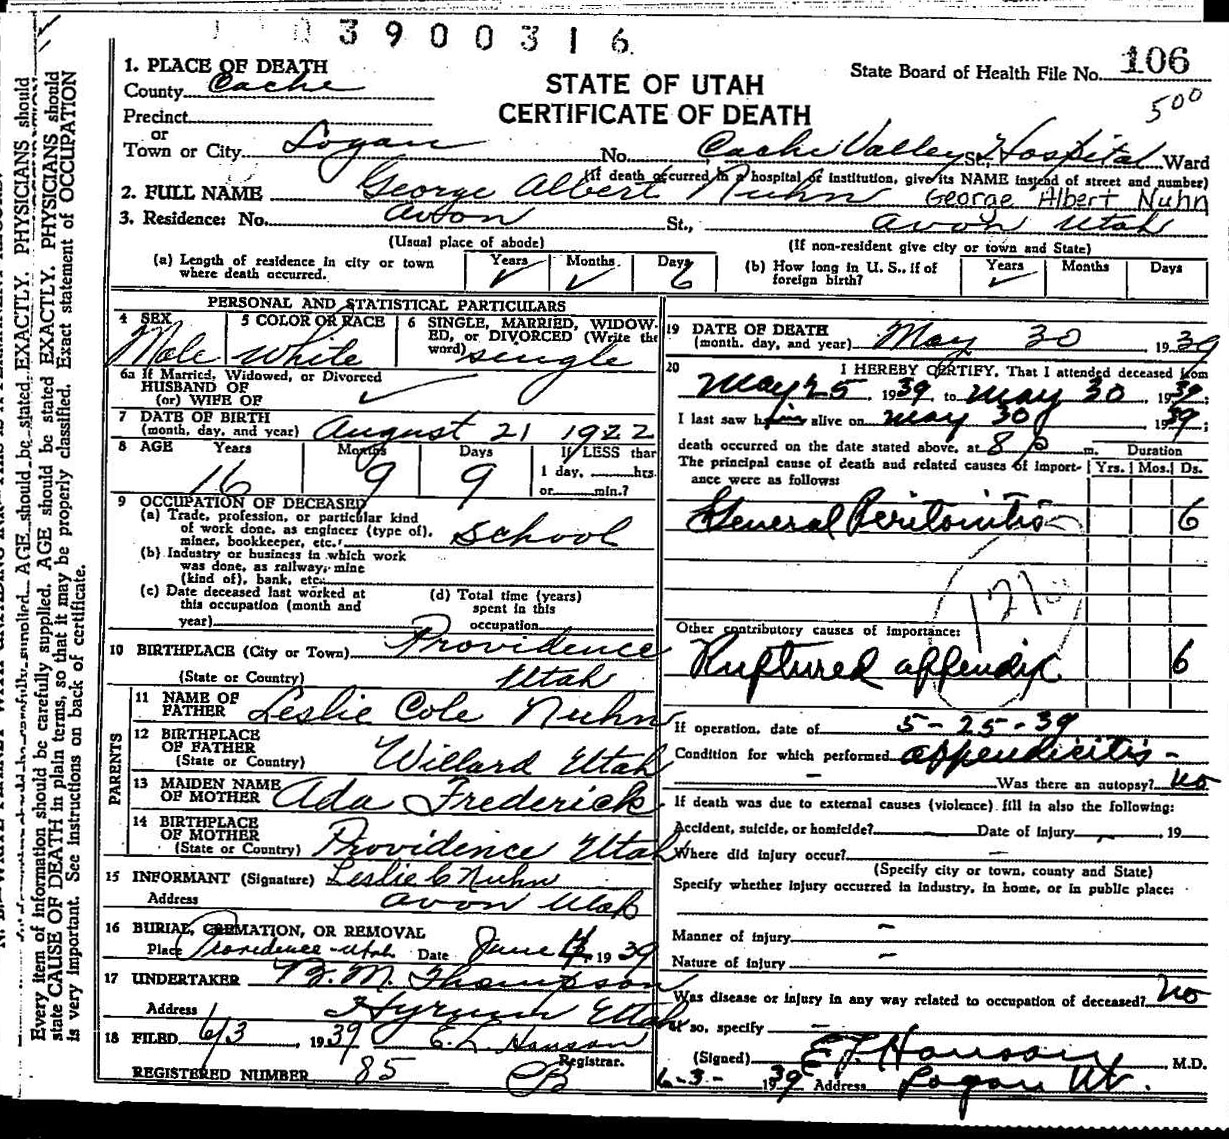 3900316
1. PLACE OF DEATH
County Cache
STATE OF UTAH
CERTIFICATE OF DEATH
State Board of Health File No. 106
500
Precinct
or
Town or City Logan No. Cache Valley St., Hospital Ward
(If death occurred in a hospital or institution, give its NAME instead of street and number)
2. FULL NAME George Albert Nuhn George Albert Nuhn
3. Residence: No. Avon St., Avon Utah
(Usual place of abode) (If non-resident give city or town and State)
(a) Length of residence in city or town where death occurred. Years ✓ Months ✓ Days 6
(b) How long in U. S., if of foreign birth? Years ✓ Months Days
PERSONAL AND STATISTICAL PARTICULARS
4 SEX Male
5 COLOR OR RACE White
6 SINGLE, MARRIED, WIDOW-
ED, or DIVORCED (Write the
word) single
6a If Married, Widowed, or Divorced
HUSBAND OF
(or) WIFE OF ✓
7 DATE OF BIRTH
(month, day, and year) August 21 1922
8 AGE Years Months Days If LESS than
16 9 9 1 day, hrs.
or min.?
9 OCCUPATION OF DECEASED
(a) Trade, profession, or particular kind
of work done, as engineer (type of),
miner, bookkeeper, etc. School
(b) Industry or business in which work
was done, as railway, mine
(kind of), bank, etc.
(c) Date deceased last worked at
this occupation (month and
year)
(d) Total time (years)
spent in this
occupation
10 BIRTHPLACE (City or Town) Providence
(State or Country) Utah
PARENTS
11 NAME OF
FATHER Leslie Cole Nuhn
12 BIRTHPLACE
OF FATHER
(State or Country) Willard Utah
13 MAIDEN NAME
OF MOTHER Ada Frederick
14 BIRTHPLACE
OF MOTHER
(State or Country) Providence Utah
15 INFORMANT (Signature) Leslie C Nuhn
Address Avon Utah
16 BURIAL, CREMATION, OR REMOVAL
Place Providence-Utah Date June 1939
17 UNDERTAKER M. Thompson
Address Hyrum Utah
18 FILED 6/3, 1939 E. L. Hanson
Registrar.
REGISTERED NUMBER 85
19 DATE OF DEATH
(month, day, and year) May 30 1939
20 I HEREBY CERTIFY, That I attended deceased from
May 25, 1939, to May 30, 1939;
I last saw him alive on May 30 1939;
death occurred on the date stated above, at 8 p m. Duration
The principal cause of death and related causes of import- Yrs. Mos. Ds.
ance were as follows:
General Peritonitis 6
Other contributory causes of importance:
Ruptured appendix 6
If operation, date of 5-25-39
Condition for which performed appendicitis -
- Was there an autopsy? no
If death was due to external causes (violence) fill in also the following:
Accident, suicide, or homicide? Date of injury - , 19
Where did injury occur? -
(Specify city or town, county and State)
Specify whether injury occurred in industry, in home, or in public place:
Manner of injury -
Nature of injury -
Was disease or injury in any way related to occupation of deceased? no
If so, specify -
(Signed) Hanson M.D.
6-3- 1939 Address Logan Ut.
Every item of information should be carefully supplied. AGE should be stated EXACTLY. PHYSICIANS should
state CAUSE OF DEATH in plain terms, so that it may be properly classified. Exact statement of OCCUPATION
is very important. See instructions on back of certificate.